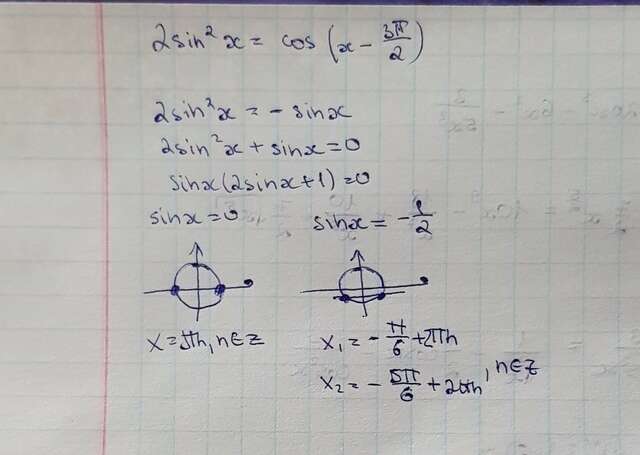 2sin²x = cos (x - 3π/2)
2sin²x = - sinx
2sin²x + sinx = 0
sinx(2sinx+1)=0
sinx=0 sinx = - 1/2
x=πn, n∈Z x₁ = - π/6 + 2πn
x₂ = - 5π/6 + 2πn, n∈Z